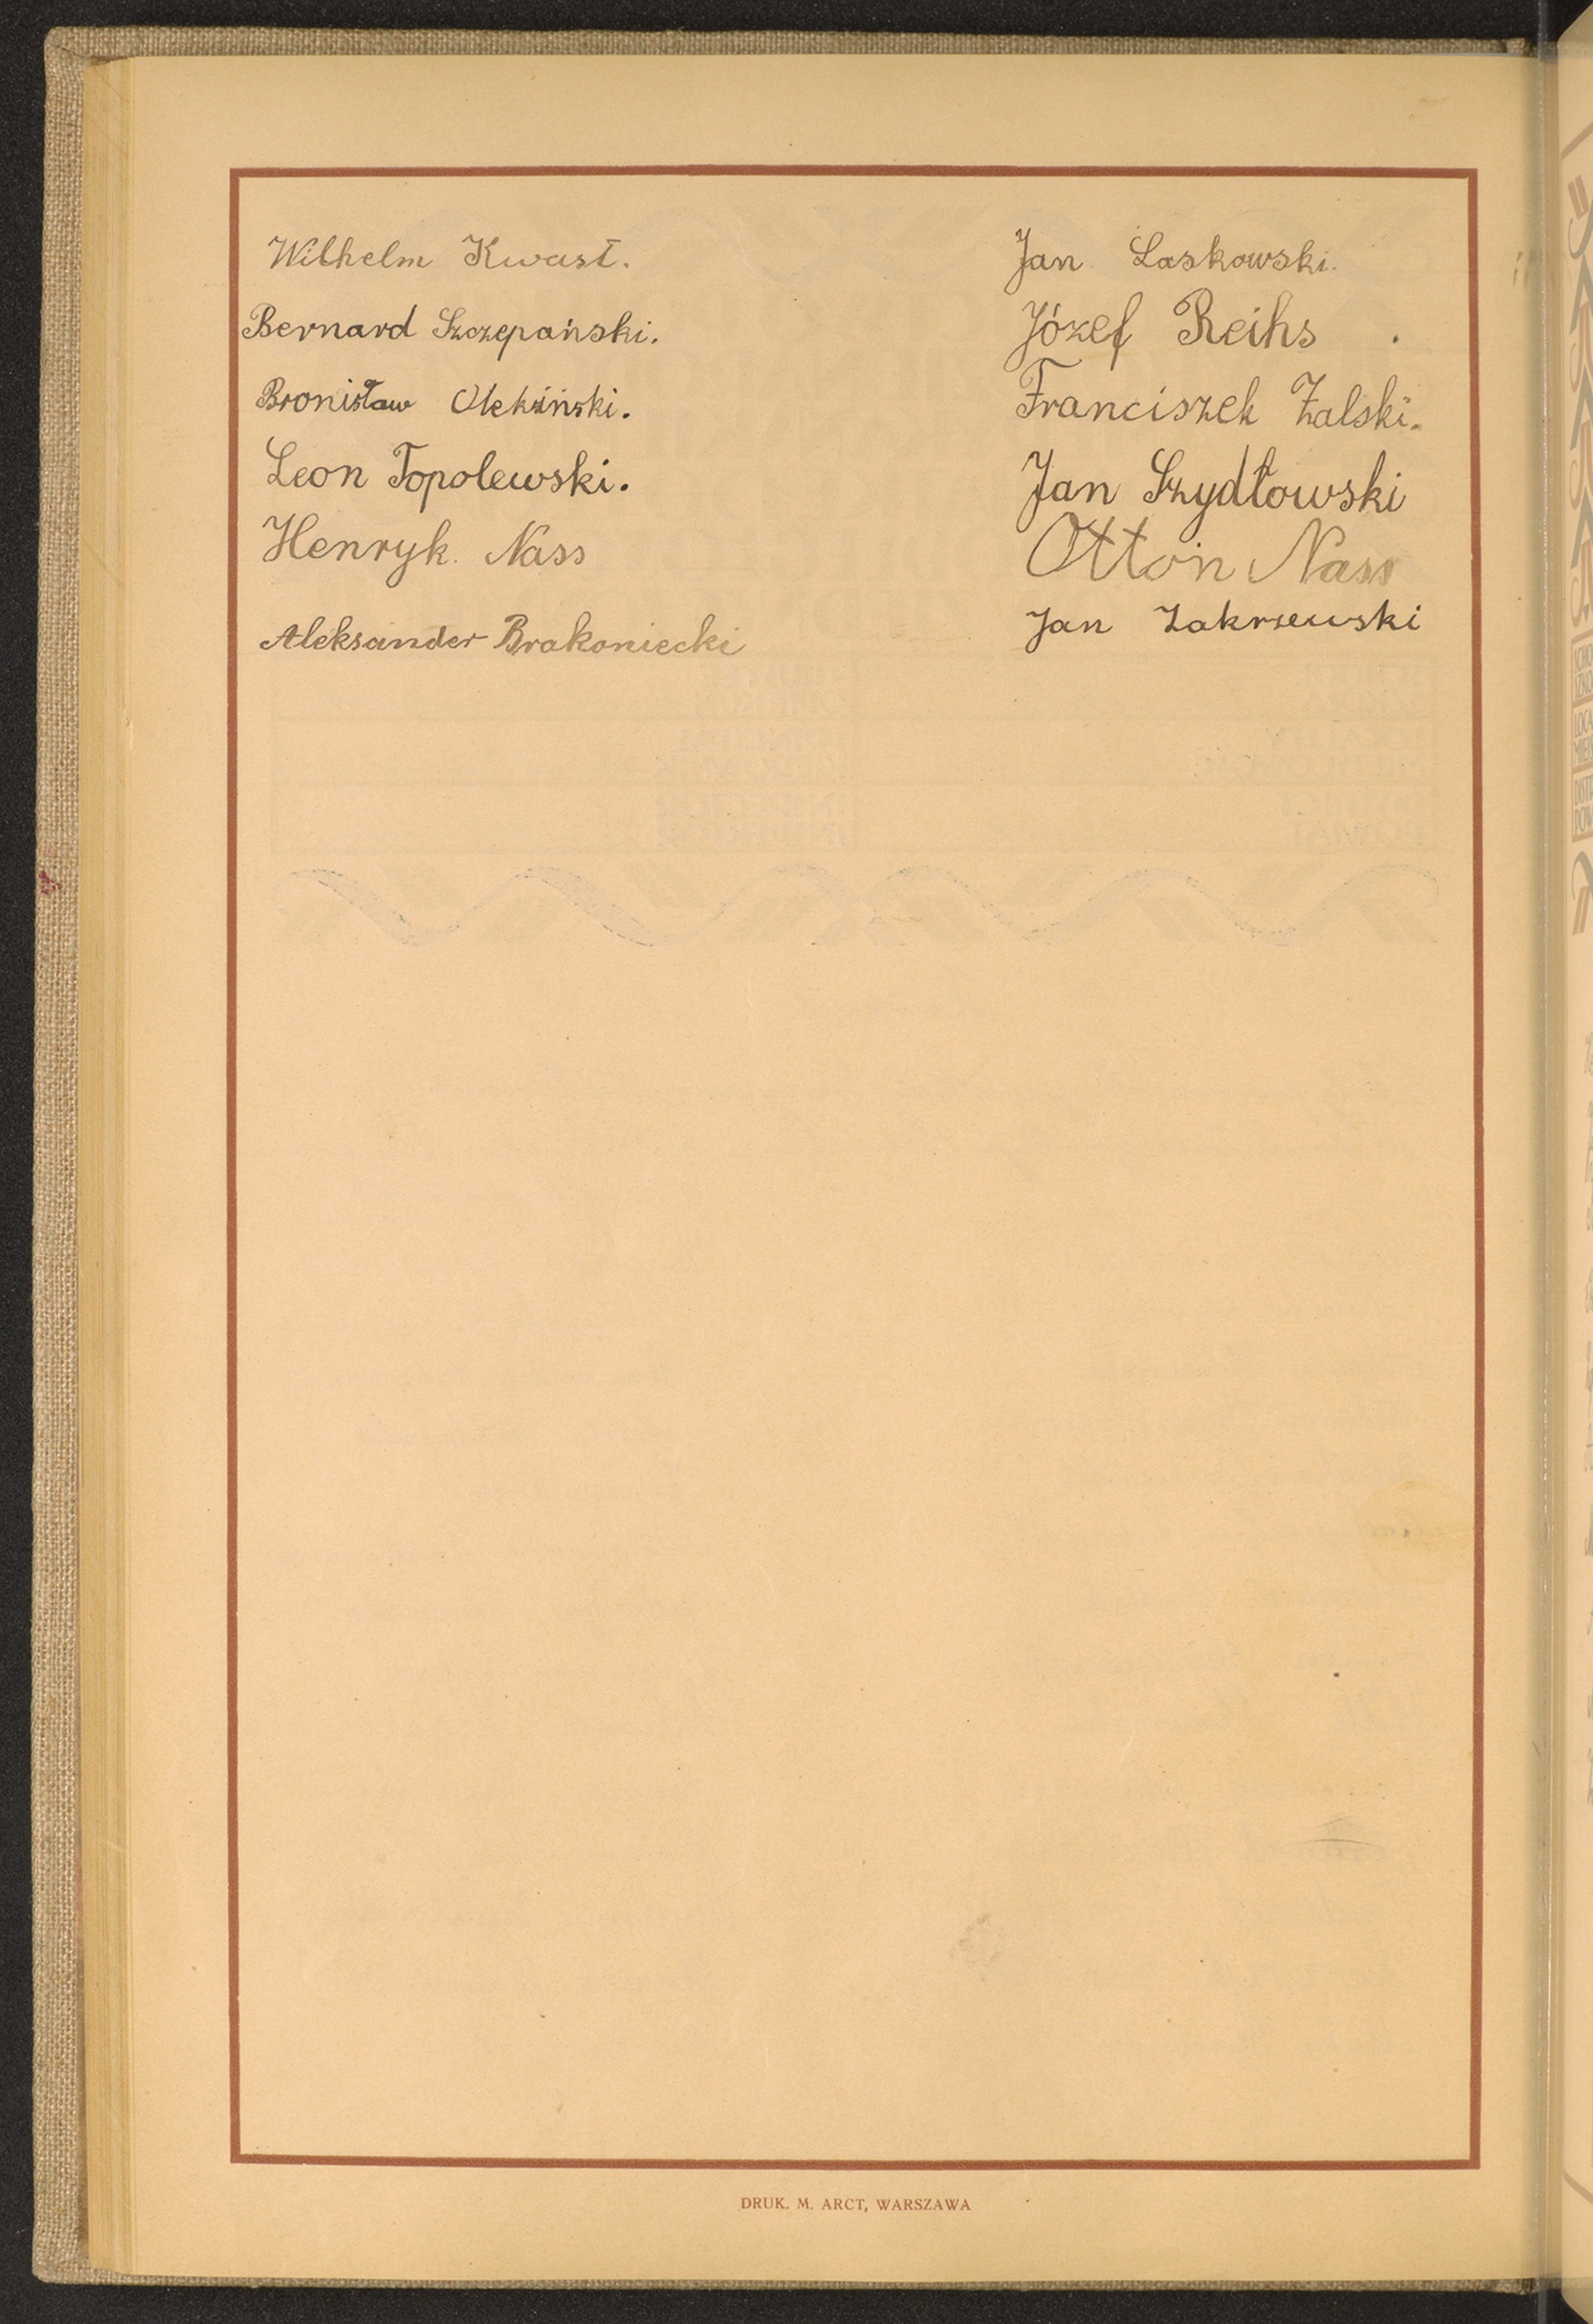 Wilhelm Kwast.
Bernard Szczepański.
Bronisław Oleksiński.
Leon Topolewski.
Henryk. Nass
Aleksander Brakoniecki
Jan Laskowski.
Józef Reihs .
Franciszek Zalski.
Jan Szydłowski
Otton Nass
Jan Zakrzewski
DRUK. M. ARCT, WARSZAWA